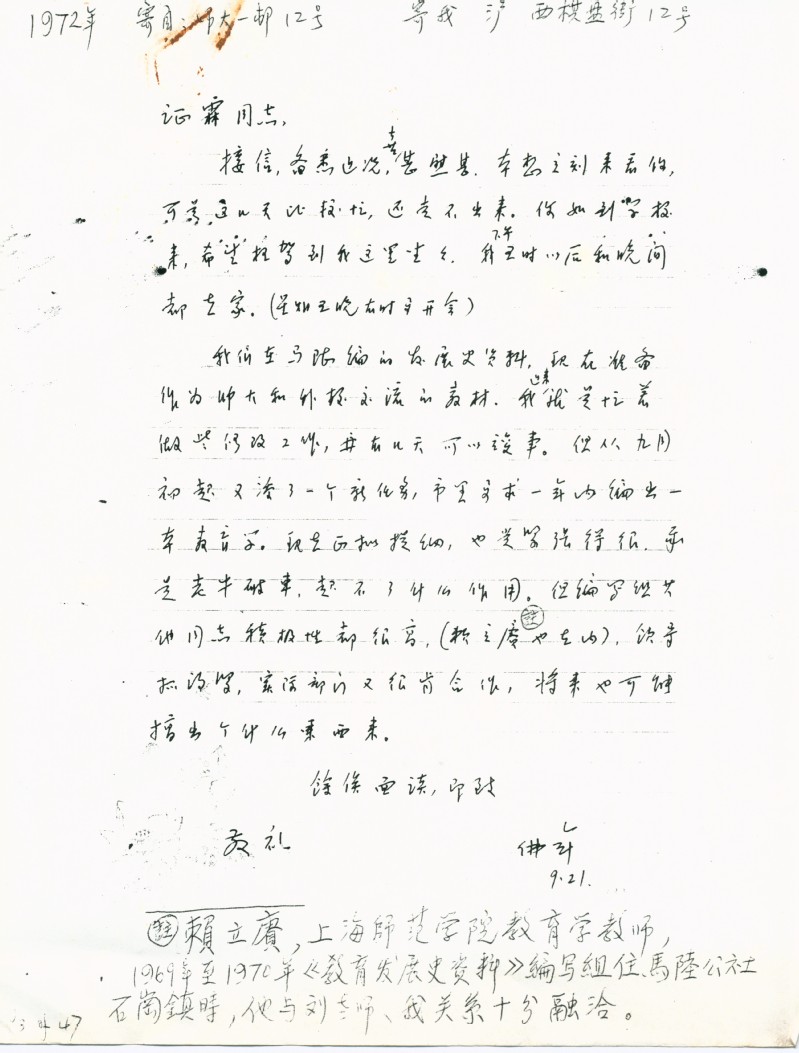 1972年 寄自:师大一邨12号 寄我 沪 西棋盘街12号
证霖同志,
接信,备悉近况,甚慰甚喜. 本想立刻来看你,
可是这几天比较忙,还走不出来。你如到学校
来,希望枉驾到我这里坐坐. 我下午五时以后和晚间
都在家。(星期五晚有时要开会)
我们在马陆编的发展史资料,现在准备
作为师大和外校交流的教材. 我近来就是忙着
做些修改工作,再有几天可以竣事。但从九月
初起又添了一个新任务,市里要求一年内编出一
本教育学。现在正拟提纲,也是紧张得很. 我
是老牛破车,起不了什么作用。但编写组其
他同志积极性都很高,(赖立赓也在内),领导
抓得紧,实际部门又很肯合作,将来也可能
搞出个什么东西来。
余俟面谈,即致
敬礼
佛年
9.21.
注 賴立賡,上海師范学院教育学教师,
1969年至1970年《教育发展史资料》编写组住馬陸公社
石崗鎮時,他与刘老师、我关系十分融洽。